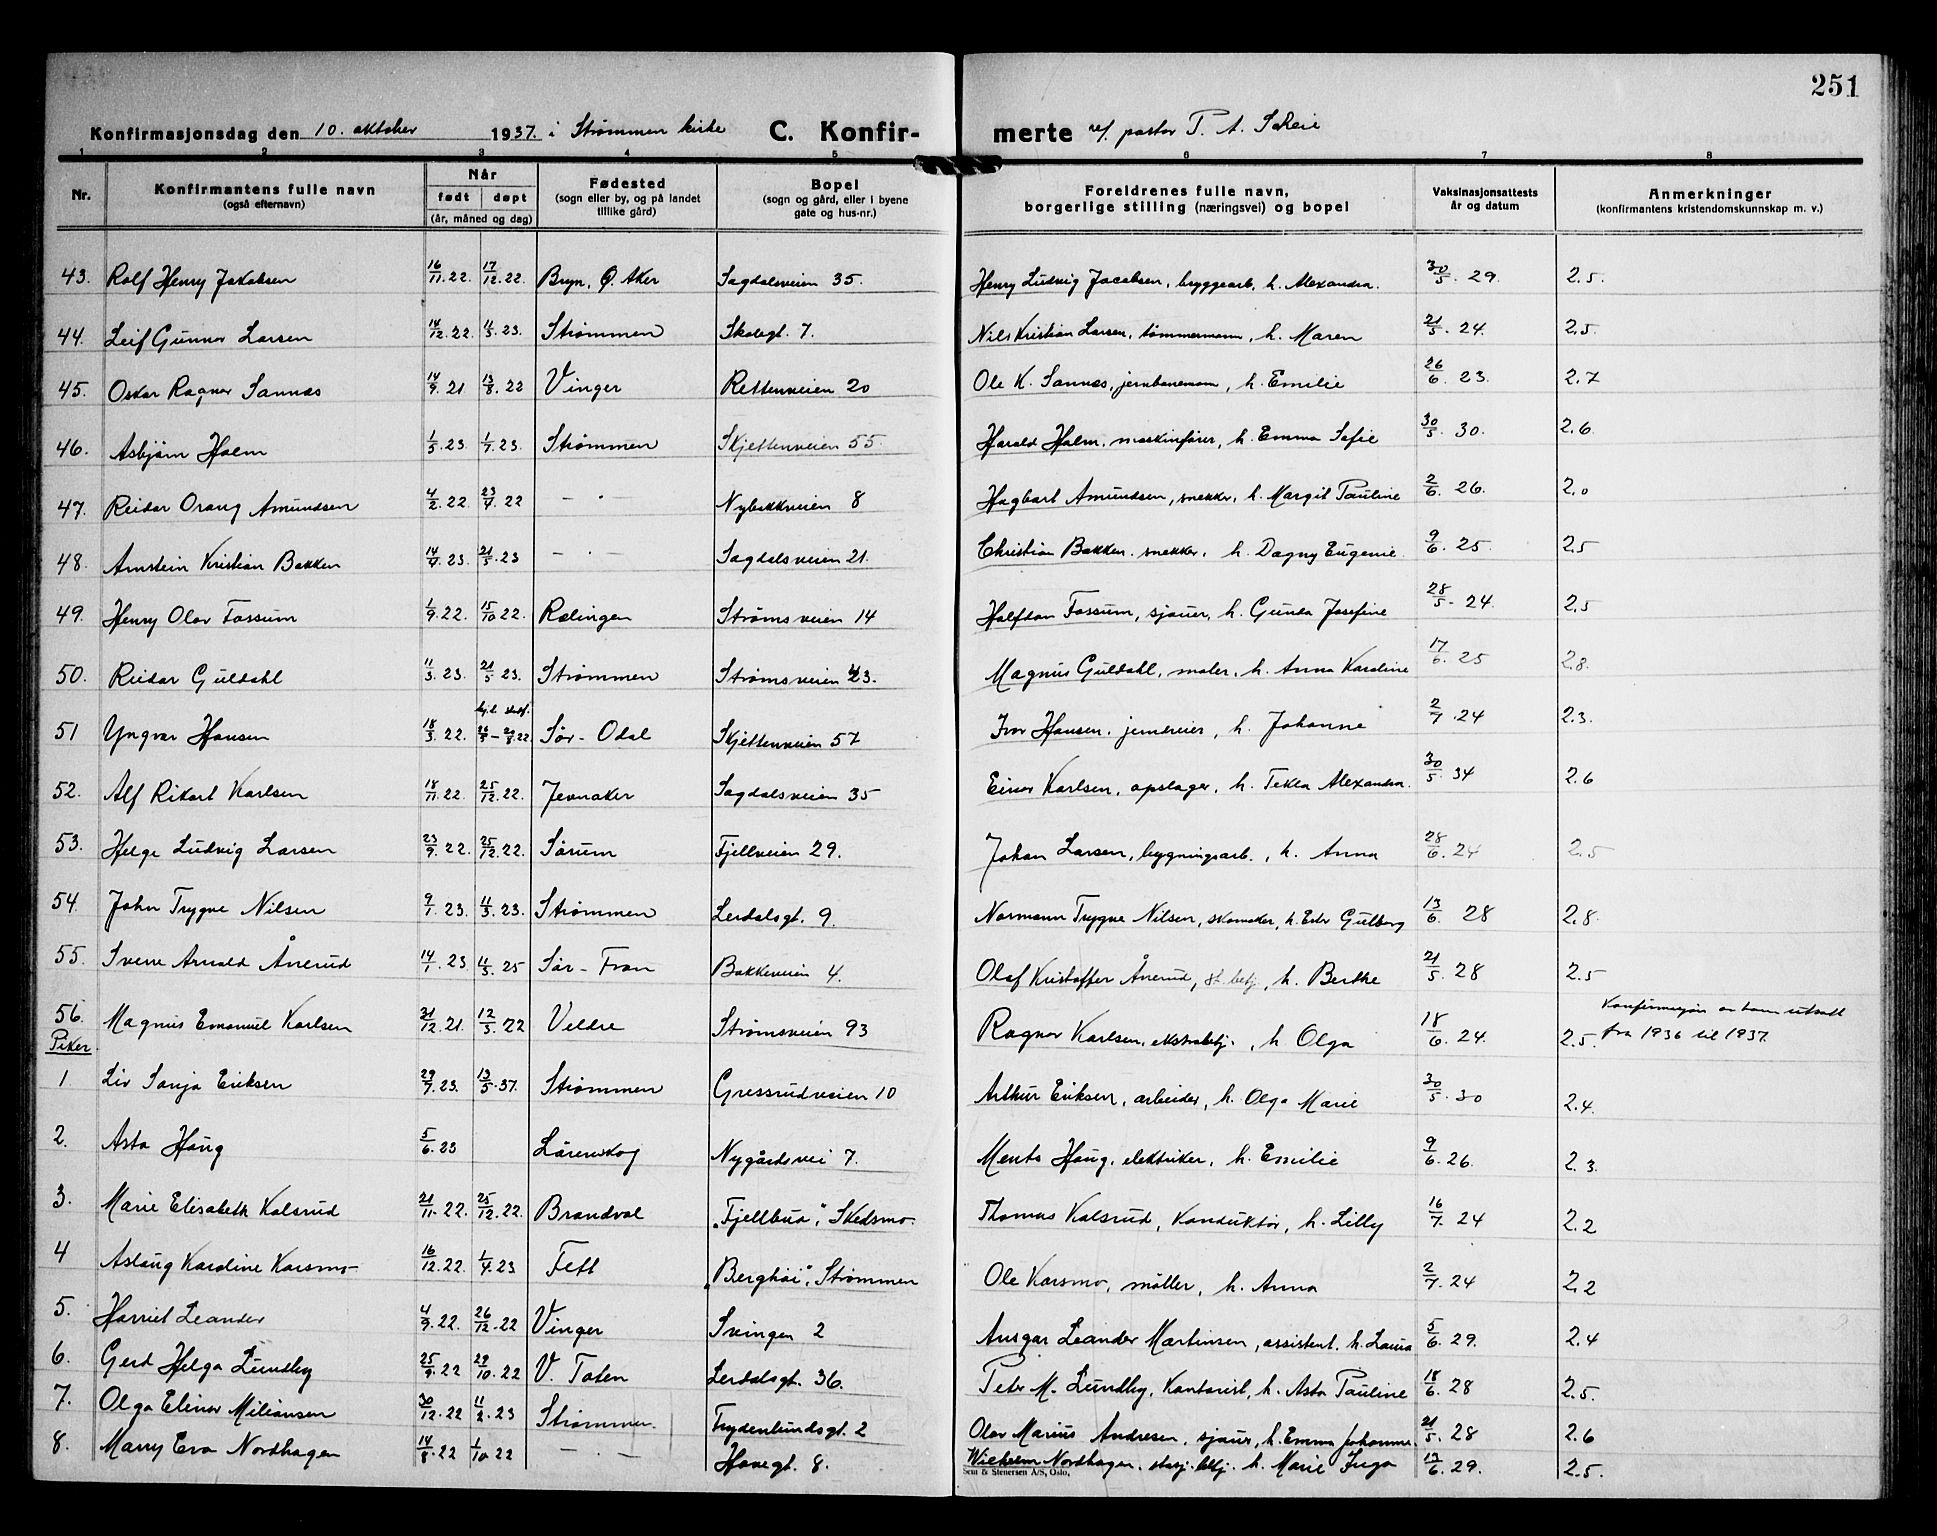 251
Konfirmasjonsdag den 10. oktober 1937. i Strømmen kirke C. Konfir- merte v/ pastor P. A. Sæheie
1 2 3 4 5 6 7 8
Nr. Konfirmantens fulle navn (også efternavn) Når født døpt (år, måned og dag) Fødested (sogn eller by, og på landet tillike gård) Bopel (sogn og gård, eller i byene gate og hus-nr.) Foreldrenes fulle navn, borgerlige stilling (næringsvei) og bopel Vaksinasjonsattests år og datum Anmerkninger (konfirmantens kristendomskunnskap m. v.)
43. Rolf Henry Jakobsen 16/11.22 17/12.22 Bryn, Ø. Aker Sagdalsveien 35. Henry Ludvig Jacobsen, bryggearb. h. Alexandra. 30/5. 29. 2.5.
44. Leif Gunnar Larsen 14/12.22 11/3.23. Strømmen Skolegt. 7. Nils Kristian Larsen, tømmermann, h. Maren 21/5. 24. 2.5.
45. Oskar Ragnar Sannæs 14/9.21 13/8.22 Vinger Rettenveien 20 Ole K. Sannæs, jernbanemann, h. Emilie 26/6. 23. 2.7
46. Asbjørn Holm 1/5.23. 1/7.23. Strømmen Skjettenveien 55. Harald Holm, maskinfører, h. Emma Sofie 30/5. 30. 2.6.
47. Reidar Orang Amundsen 4/2.22. 23/4.22 — " — Nybakkveien 8 Hagbart Amundsen, snekker, h. Margit Pauline 2/6. 26. 2.0
48. Arnstein Kristian Bakken 14/4.23. 21/5.23 — " — Sagdalsveien 21. Christian Bakken, snekker, h. Dagny Eugenie. 9/6. 25. 2.5
49. Henry Olav Fossum 1/9.22. 15/10.22. Rælingen Strømsveien 14 Halfdan Fossum, sjauer, h. Gunda Josefine 28/5. 24. 2.5
50. Reidar Guldahl 11/3.23. 21/5.23. Strømmen Strømsveien 23. Magnus Guldahl, maler, h. Anna Karoline 17/6. 25 2.8.
51 Yngvar Hansen 18/3.22. Sør-Odal Skjettenveien 57 Ivar Hansen, h. Johanne 2/7. 24 2.3.
52. Alf Rikart Karlsen 18/11.22. 25/12.22. Jevnaker Sagdalsveien 35 Einar Karlsen, opslager, h. Tekla Alexandra. 30/5. 34 2.6
53. Helge Ludvig Larsen 23/9.22. 25/12.22. Sørum Fjellveien 29. Johan Larsen, bygningsarb., h. Anna 28/6. 24 2.5
54. John Trygve Nilsen 9/1.23. 11/3.23. Strømmen Lerdalsgt. 9. Normann Trygve Nilsen, skomaker, h. Ester Gulborg 13/6. 28 2.8.
55. Svenn Arnold Ånerud 14/1.23 11/3.25 Sør-Fron Bakkeveien 4. Olaf Kristoffer Ånerud, st. betj., h. Berthe 21/5. 28 2.5
56. Magnus Emanuel Karlsen 31/12.21. 12/3.22 Veldre Strømsveien 93 Ragnar Karlsen, ekstrabetj., h. Olga 18/6. 24. 2.5. Konfirmasjonen utsatt fra 1936 til 1937.
Piker
1. Liv Sonja Eriksen 29/7.23. 13/5.37. Strømmen Gressrudveien 10 Arthur Eriksen, arbeider, h. Olga Marie 30/5. 30 2.4.
2. Asta Haug 5/6.23 Lørenskog Nygårdsvei 7. Mentz Haug, elektriker, h. Emilie 9/6. 26. 2.3.
3. Marie Elisabeth Kalsrud 21/11.22. 25/12.22. Brandval „Fjellbua", Skedsmo. Thomas Kalsrud, Konduktør, h. Lilly 16/7. 24 2.2
4 Aslaug Karoline Karsmo 16/12.22. 1/4.23 Fett „Berghøi", Strømmen Ole Karsmo, møller, h. Anna 2/7. 24 2.2
5. Harriet Leander 4/9.22. 26/12.22 Vinger Svingen 2 Ansgar Leander Martinsen, assistent, h. Laura 5/6. 29. 2.4
6. Gerd Helga Lundby 25/9.22 29/10.22 V. Toten Lerdalsgt. 36. Peter M. Lundby, Kontorist, h. Asta Pauline 18/6. 28 2.5.
7. Olga Elinor Miliansen 30/12.22 11/2.23 Strømmen. Frydenlundsgt. 2 Olav Marius Andresen, sjauer, h. Emma Johanne. 21/5. 28 2.6
8. Marry Eva Nordhagen 14/8.22 1/10.22 — " — Havegt. 8. Wilhelm Nordhagen, stasj. betj. h. Marie Inga 13/6. 29. 2.5.
Sem & Stenersen A/S, Oslo.